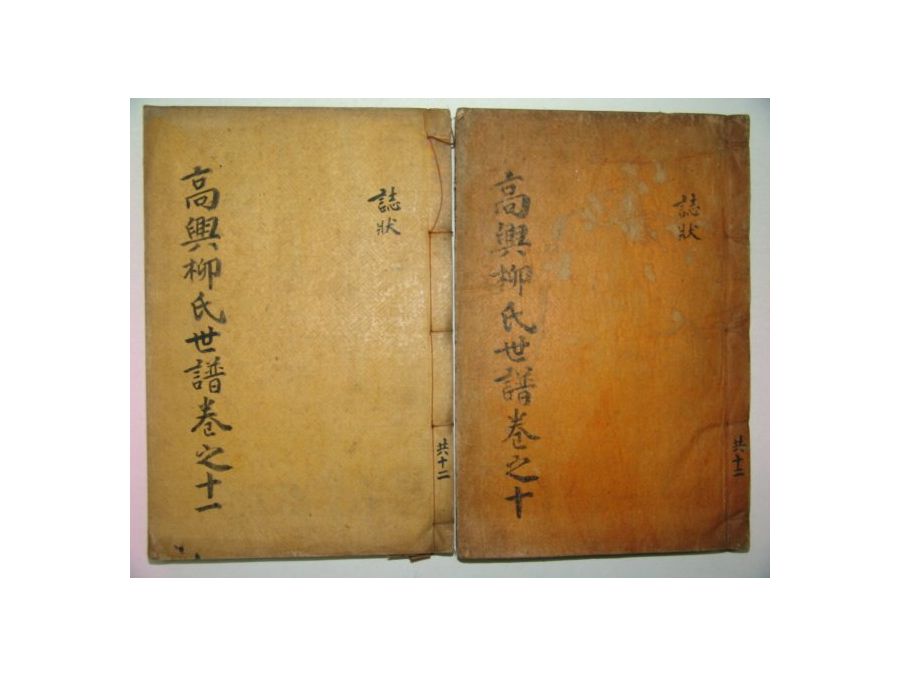 誌狀
高興柳氏世譜卷之十
共十二
誌狀
高興柳氏世譜卷之十一
共十二